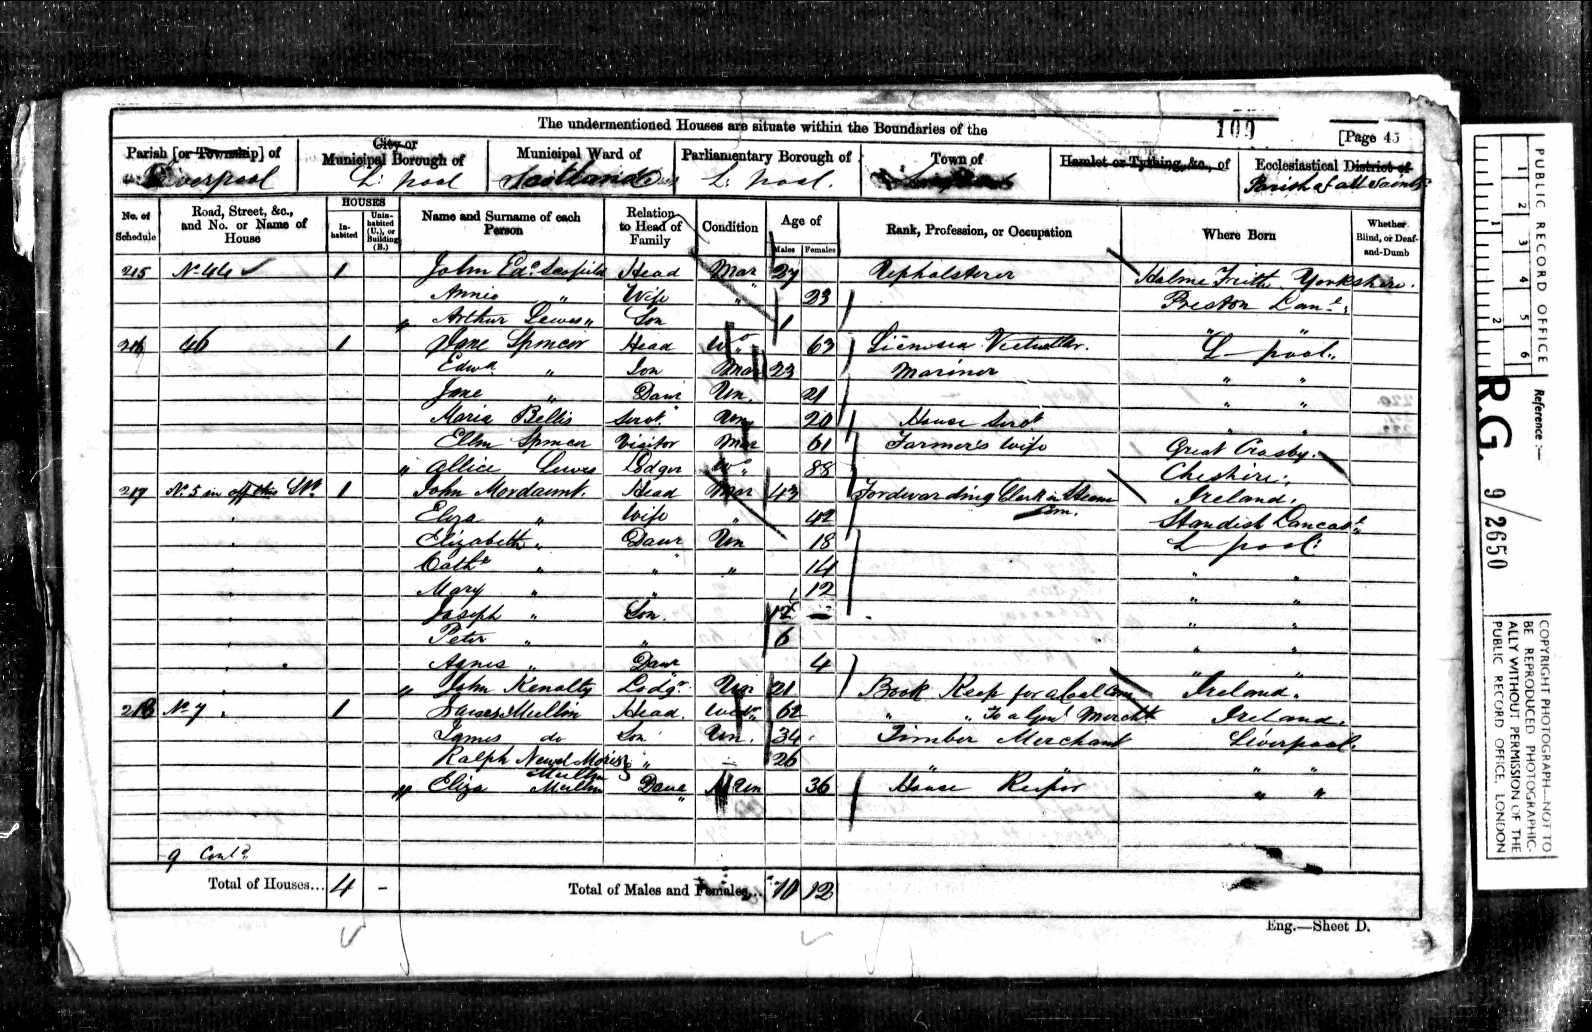 The undermentioned Houses are situate within the Boundaries of the
109
[Page 45
Parish [or Township] of
Liverpool
City or Municipal Borough of
L. pool
Municipal Ward of
Scotland
Parliamentary Borough of
L. pool.
Town of
Hamlet or Tything, &c., of
Ecclesiastical District of
Parish of All Saints
No. of Schedule
Road, Street, &c., and No. or Name of House
HOUSES
In-habited
Unin-habited (U.), or Building (B.)
Name and Surname of each Person
Relation to Head of Family
Condition
Age of
Males
Females
Rank, Profession, or Occupation
Where Born
Whether Blind, or Deaf-and-Dumb
215 No 44 1 John Edd Scofield Head Mar 27 Upholsterer Holme Frith Yorkshire.
Annie " Wife " 23 Preston Lanc.
Arthur Lewes " Son 1 " "
216 46 1 Jane Spencer Head Wo 63 Victualler. L pool.
Edwd " Son Mar 23 Mariner " "
Jane " Daur Un 21 " "
Maria Bellis Servt Un 20 House Servt " "
Ellen Spencer Visitor Mar 61 Farmer's wife Great Crosby.
Allice Lewes Lodger Wo 88 Cheshire.
217 No 5 in 1 John Mordaunt. Head Mar 43 Fordwarding Clerk Ireland.
Eliza " Wife " 42 Standish Lancast
Elizabeth " Daur Un 18 L pool.
Cathe " " " 14 " "
Mary " " 12 " "
Joseph " Son. 12 " "
Peter " " 6 " "
Agnes " Daur 4 " "
John Kenalty Lodgr Un 21 Book Keep for a Coal Ireland.
218 No 7 1 Mullin Head. Widr 62 " " To a Genl Mercht Ireland.
James do Son Un. 34 Timber Merchant Liverpool.
Ralph Newel " 26 " " " "
Mullin
Eliza Mullin Daur Un 36 House Keeper " "
9 Contd
Total of Houses... 4 -
Total of Males and Females... 10 12
Eng.—Sheet D.
PUBLIC RECORD OFFICE
1 2 3 4 5 6
1 2
Reference:-
R.G. 9/2650
COPYRIGHT PHOTOGRAPH—NOT TO
BE REPRODUCED PHOTOGRAPHIC-
ALLY WITHOUT PERMISSION OF THE
PUBLIC RECORD OFFICE, LONDON